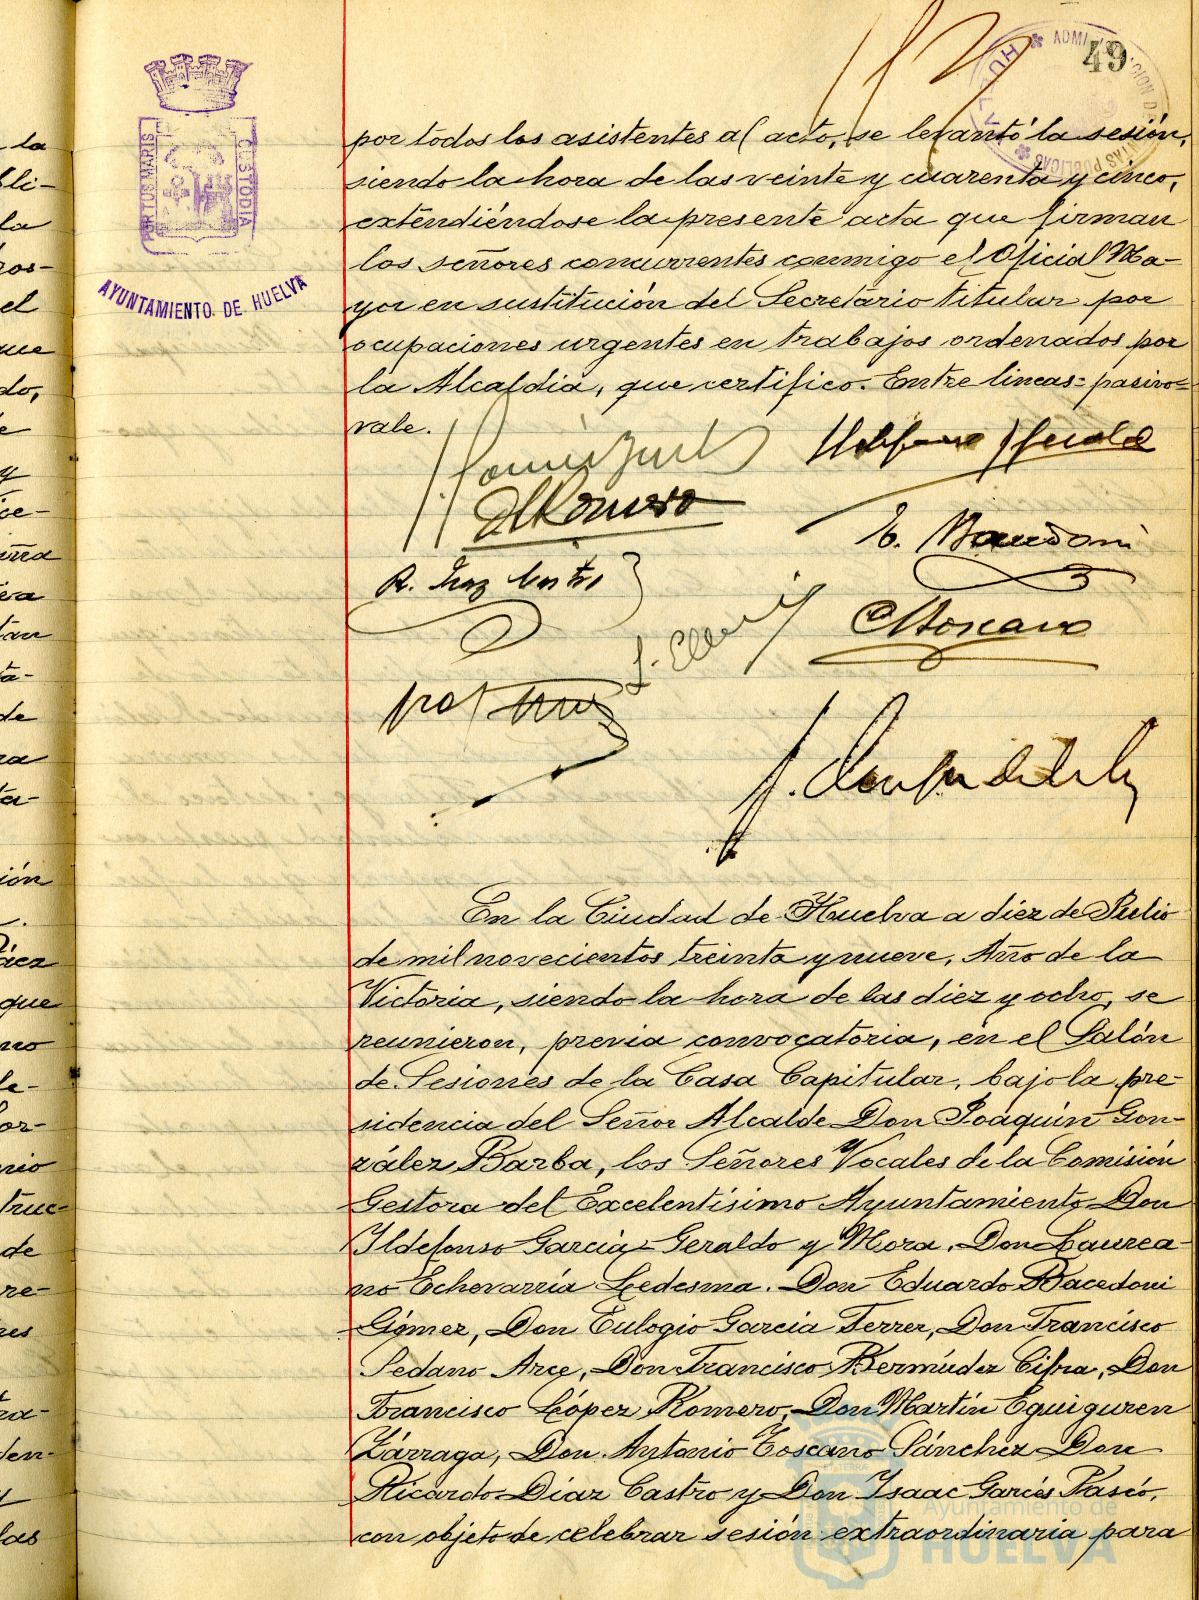 49
ADMI
HUELVA
PORTUS MARIS
CUSTODIA
AYUNTAMIENTO DE HUELVA
por todos los asistentes al acto, se levantó la sesión,
siendo la hora de las veinte y cuarenta y cinco,
extendiéndose la presente acta que firman
los señores concurrentes conmigo el Oficial Ma-
yor en sustitución del Secretario titular por
ocupaciones urgentes en trabajos ordenados por
la Alcaldía, que certifico. Entre lineas=pasivo=
vale.
R. Diaz Castro
E. Bacedoni
En la Ciudad de Huelva a diez de Julio
de mil novecientos treinta y nueve, Año de la
Victoria, siendo la hora de las diez y ocho, se
reunieron, previa convocatoria, en el Salón
de Sesiones de la Casa Capitular, bajo la pre-
sidencia del Señor Alcalde Don Joaquín Gon-
zález Barba, los Señores Vocales de la Comisión
Gestora del Excelentísimo Ayuntamiento Don
Ildefonso Garcia-Geraldo y Mora, Don Laurea-
no Echevarría Ledesma. Don Eduardo Bacedoni
Gómez, Don Eulogio Garcia Ferrer, Don Francisco
Sedano Arce, Don Francisco Bermúdez Cifra, Don
Francisco López Romero, Don Martín Eguiguren
Zárraga, Don Antonio Toscano Sánchez Don
Ricardo Díaz Castro y Don Isaac Garcés Pascó,
con objeto de celebrar sesión extraordinaria para
Ayuntamiento de
HUELVA